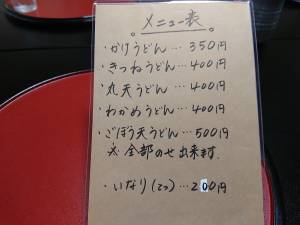 メニュー表
・かけうどん…350円
・きつねうどん…400円
・丸天うどん…400円
・わかめうどん…400円
・ごぼう天うどん…500円
※全部のせ出来ます.
・いなり(2つ)…200円